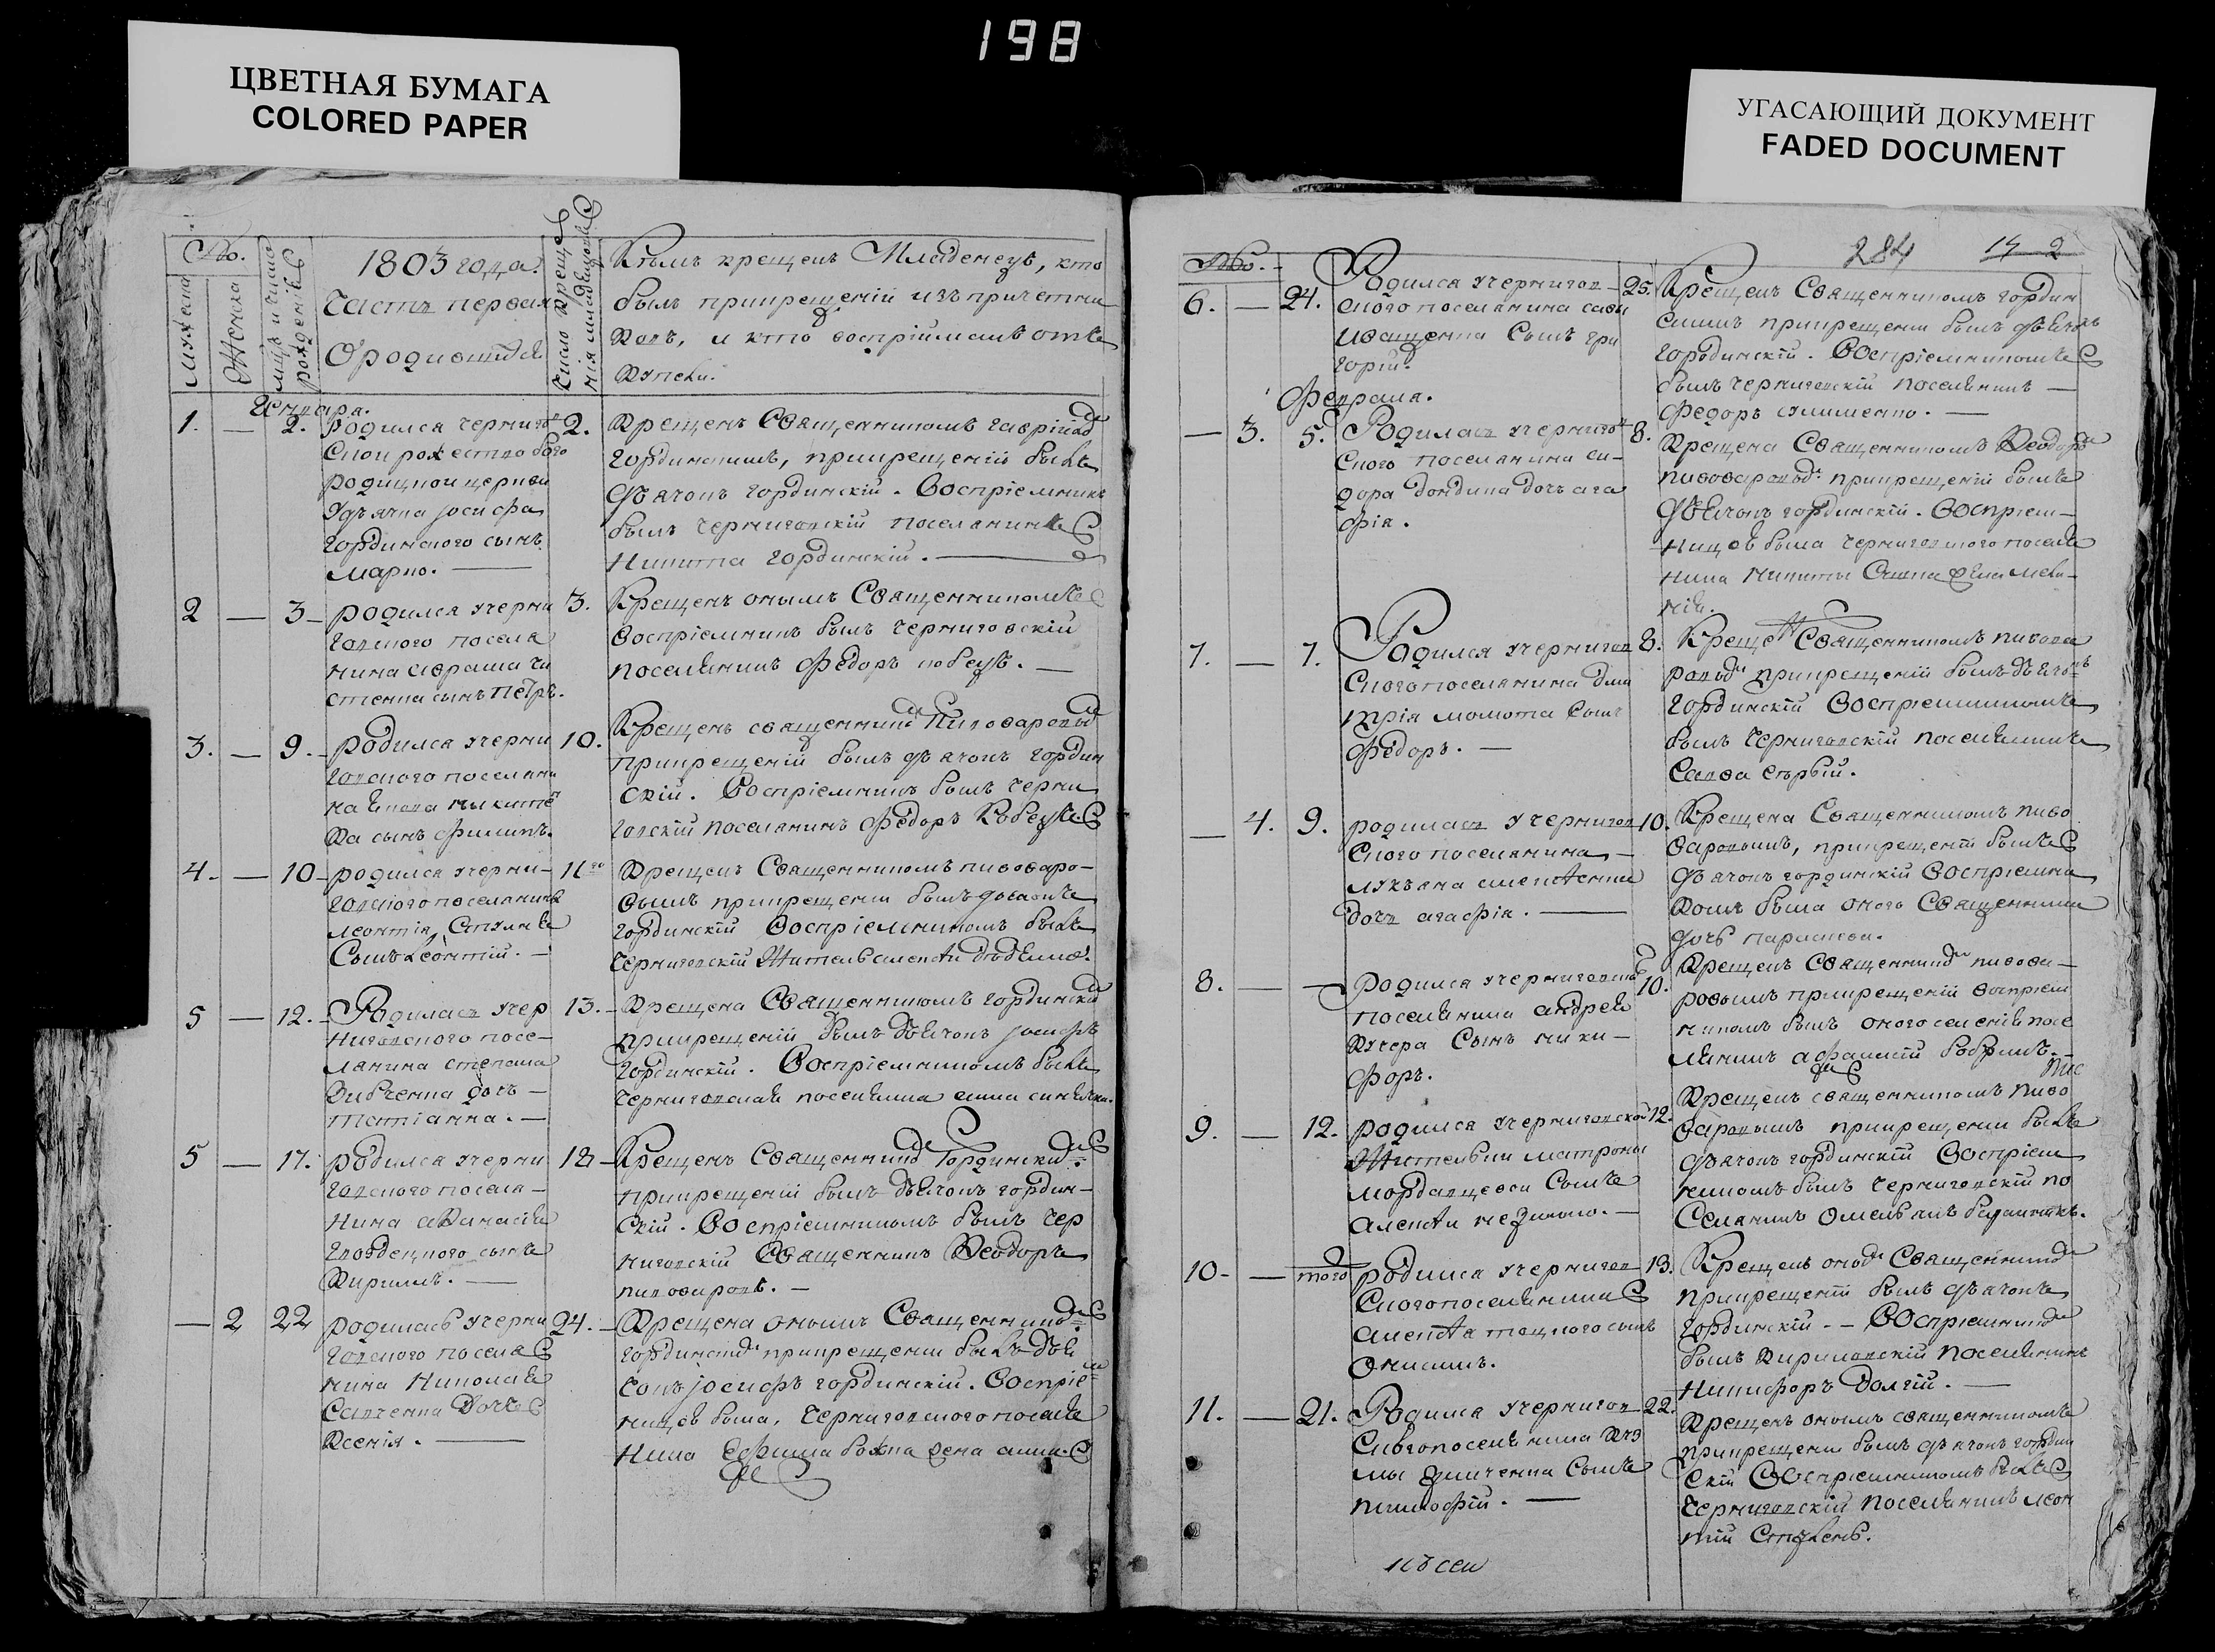 198
ЦВЕТНАЯ БУМАГА
COLORED PAPER
УГАСАЮЩИЙ ДОКУМЕНТ
FADED DOCUMENT
No.
мужеска
Женска
рожденія
1803 года.
Часть первая
О родившихся
Число крещенія младенцовъ
Кѣмъ крещенъ Младенецъ, кто
былъ прикрещеніи изъ причетни
ковъ, и кто воспріималъ отъ
купели.
1. — 2. родился чернигов
ской рожество бого
родицкой церкви
удьячка іосифа
гординского сынъ
марко.
2.
Крещенъ Священникомъ гавріиломъ
гординскимъ, прикрещеніи былъ
дьячокъ гординскій. Воспріемникъ
былъ черниговскій поселанинъ
Никита гординскій.
2 — 3 родился учерни
говского посела
нина
сынъ Петръ.
3.
Крещенъ онымъ Священникомъ
Воспріемникъ былъ черниговскій
поселянинъ Федоръ кобецъ.
3. — 9. родился учерни
говского поселани
на
сынъ филипъ.
10.
Крещенъ священникомъ Пивоваровымъ
прикрещеніи былъ дьячокъ гордин
скій. Воспріемникъ былъ черни
говскій поселанинъ Федоръ Кобецъ
4. — 10 родился учерни
говского поселанина
леонтія
Сынъ Леонтій.
11го
Крещенъ Священникомъ пивоваро
вымъ прикрещеніи былъ дьячокъ
гординскій Воспріемникомъ былъ
черниговскій Житель алексѣй
5 — 12. Родилась учер
ниговского посе
лянина степана
дочь
татіанна.
13.
Крещена Священникомъ гординскимъ
прикрещеніи былъ дьячокъ іосифъ
гординскій. Воспріемникомъ былъ
черниговская поселянка анна
5 — 17. родился учерни
говского посела
нина аѳанасія
сынъ
Кирилъ.
18
Крещенъ Священникомъ Гординскимъ
прикрещеніи былъ дьячокъ гордин
скій. Воспріемникомъ былъ чер
ниговскій Священникъ Ѳеодоръ
пивоваровъ.
— 2 22 родилась учерни
говского посела
нина Николая
Савченка дочь
Ксенія.
24.
Крещена онымъ Священникомъ
гординскимъ прикрещеніи былъ дьяч
окъ іосифъ гординскій. Воспріем
ницею была, черниговского поселя
нина Ефима жена анна.
284
No.
6. — 24. Родился учернигов
ского поселанина савы
иващенка Сынъ гри
горій.
25.
Крещенъ Священникомъ гордин
скимъ прикрещеніи былъ дьячокъ
гординскій. Воспріемникомъ
былъ черниговскій поселянинъ
Федоръ клименко.
Февраля.
— 3. 5. Родилась учернигов
ского поселанина си
дора дочь ага
фія.
8.
Крещена Священникомъ Ѳеодоромъ
пивоваровымъ прикрещеніи былъ
дьячокъ гординскій. Воспріем
ницею была черниговского поселя
нина Никиты
7. — 7. Родился учернигов
ского поселянина дми
трія момота Сынъ
Федоръ.
8.
Крещенъ Священникомъ пивова
ровымъ прикрещеніи былъ дьячокъ
гординскій Воспріемникомъ
былъ черниговскій поселянинъ
Савва сѣрый.
— 4. 9. родилась учернигов
ского поселянина
лукьяна алексѣенка
дочь агафія.
10.
Крещена Священникомъ пиво
варовымъ, прикрещеніи былъ
дьячокъ гординскій Воспріемни
комъ была оного Священника
дочь параскева.
8. — — родился учерниговского
поселянина андрея
кучера Сынъ ники
форъ.
10.
Крещенъ Священникомъ пивова
ровымъ прикрещеніи воспріем
никомъ былъ оного селенія посе
лянинъ афанасій бобрикъ.
9. — 12. родился учерниговской
Жительки матроны
мордавцевой Сынъ
алексѣй незаконо.
12.
Крещенъ священникомъ пиво
варовымъ прикрещеніи былъ
дьячокъ гординскій Воспріем
никомъ былъ черниговскій по
селанинъ Омельянъ
10. — того родился учернигов
ского поселянина
алексѣя тоцкого сынъ
Онисимъ.
13.
Крещенъ онымъ Священникомъ
прикрещеніи былъ дьячокъ
гординскій. Воспріемникомъ
былъ кириловскій поселянинъ
Никифоръ Долгій.
11. — 21. Родился учернигов
ского поселянина кузь
мы Сынъ
тимофій.
22.
Крещенъ онымъ священникомъ
прикрещеніи былъ дьячокъ гордин
скій Воспріемникомъ былъ
черниговскій поселянинъ леон
тій